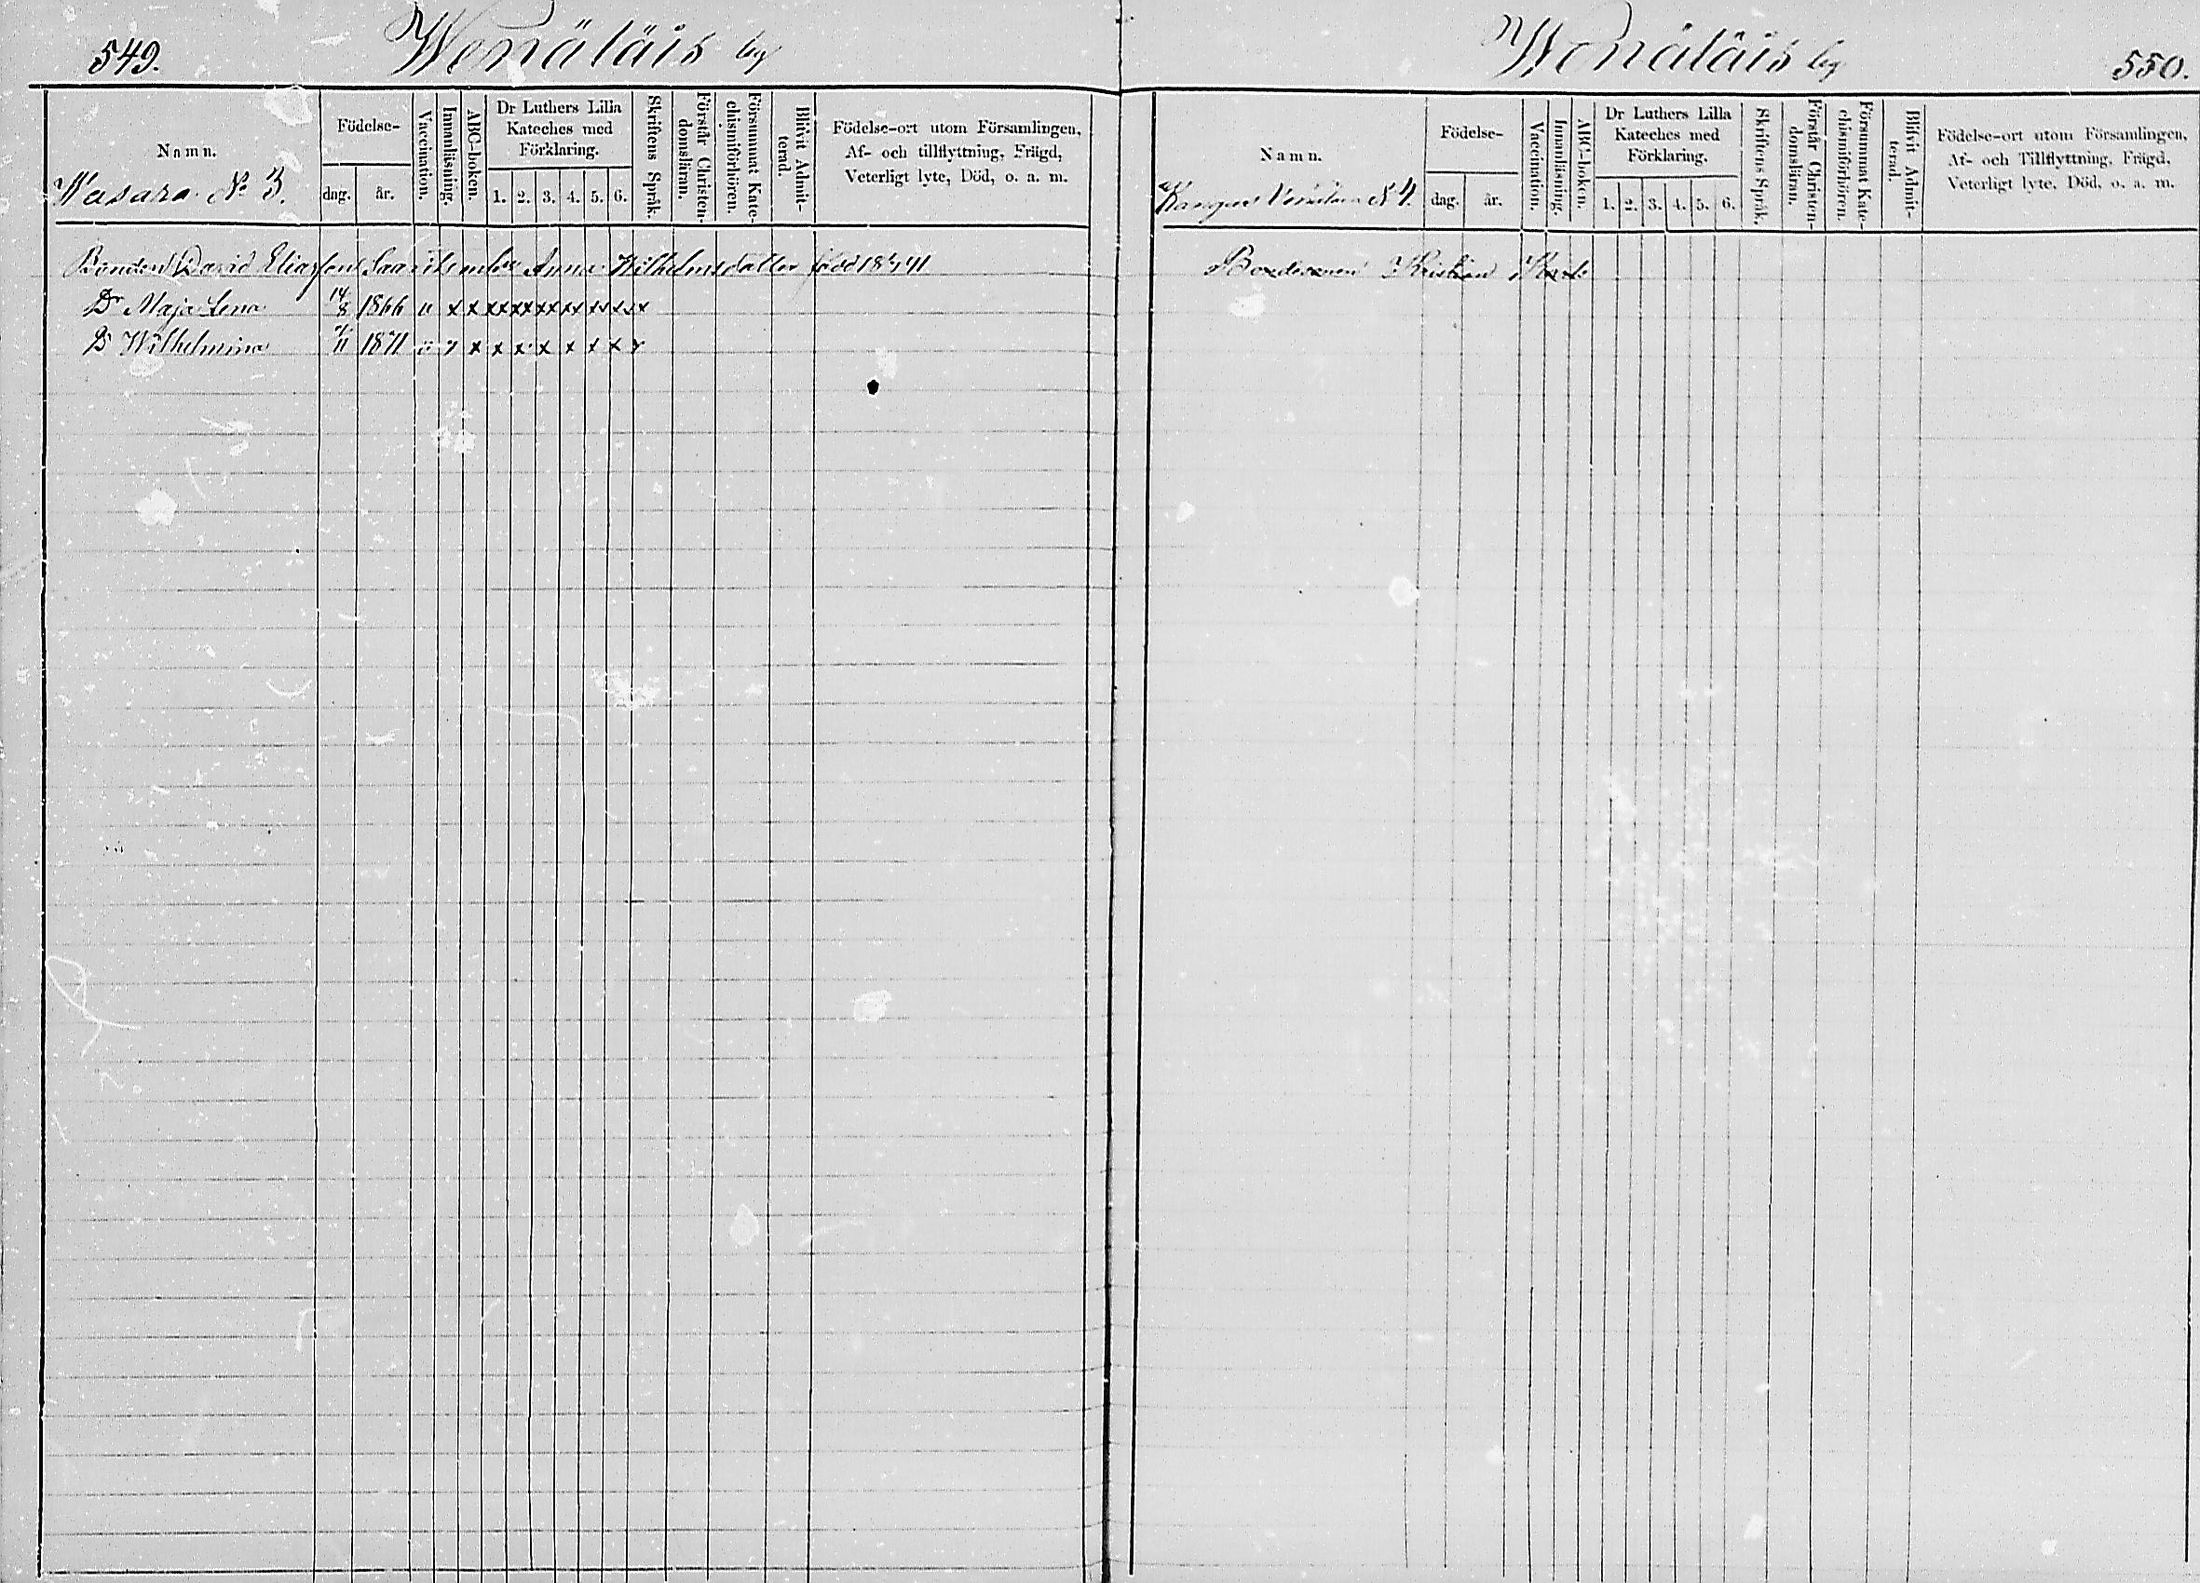 549.
Wenäläis by
Namn.
Wasara No 3.
Födelse-
dag.
år.
Vaccination.
Innanläsning.
ABC-boken.
Dr Luthers Lilla
Kateches med
Förklaring.
1. 2. 3. 4. 5. 6.
Skriftens Språk.
Förstår Christen-
domsläran.
Försummat Kate-
chismiförhören.
Blifvit Admit-
terad.
Födelse-ort utom Församlingen,
Af- och tillflyttning, Frägd,
Veterligt lyte, Död, o. a. m.
Bonden David Eliasson Anna Wilhelmsdotter född
Dr Maja Lena 14/8 1866 u x x xx xx xx xx xx xx x
Dr Wilhelmina 1871 x x x x x x x
Wenäläis by
550.
Namn.
No 4.
Födelse-
dag.
år.
Vaccination.
Innanläsning.
ABC-boken.
Dr Luthers Lilla
Kateches med
Förklaring.
1. 2. 3. 4. 5. 6.
Skriftens Språk.
Förstår Christen-
domsläran.
Försummat Kate-
chismiförhören.
Blifvit Admit-
terad.
Födelse-ort utom Församlingen,
Af- och Tillflyttning, Frägd,
Veterligt lyte, Död, o. a. m.
Kristian